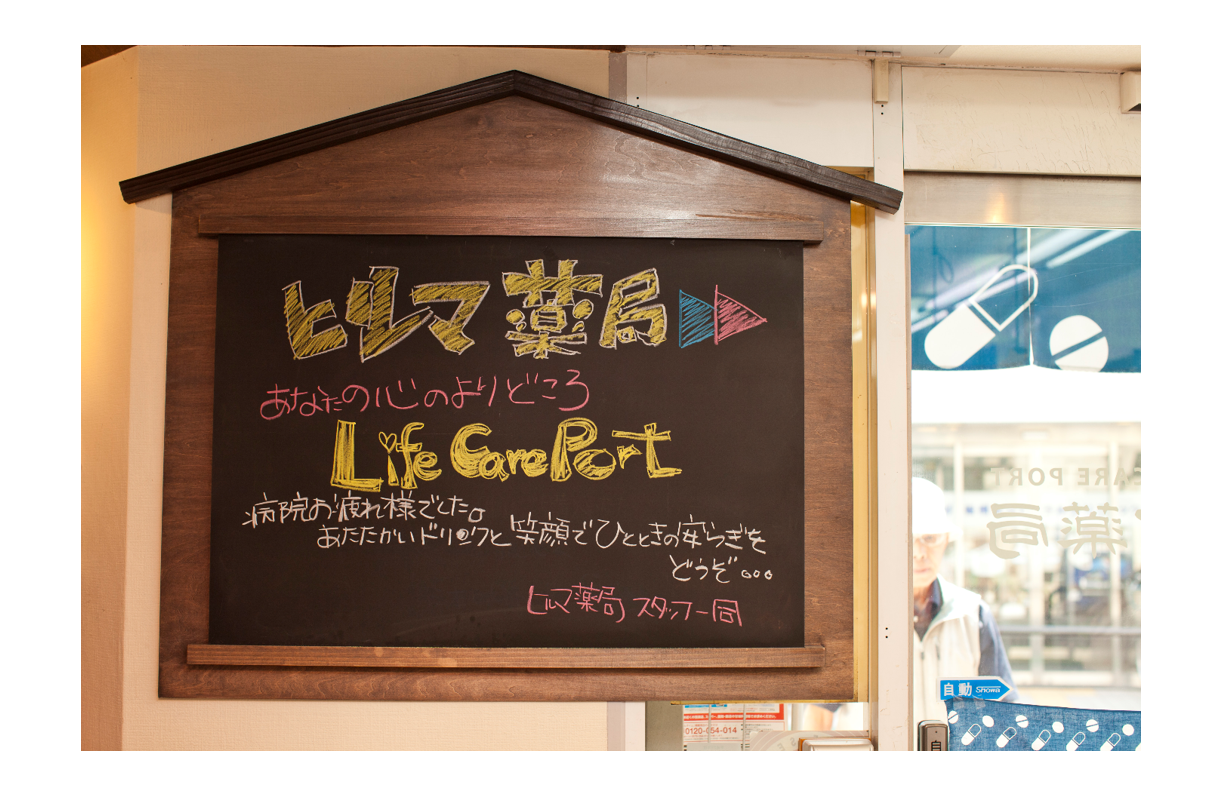 ヒルマ薬局
あなたの心のよりどころ
Life Care Port
病院お疲れ様でした。
あたたかいドリンクと笑顔でひとときの安らぎを
どうぞ。。。
ヒルマ薬局 スタッフ一同
CARE PORT
薬局
自動 Showa
0120-054-014
自